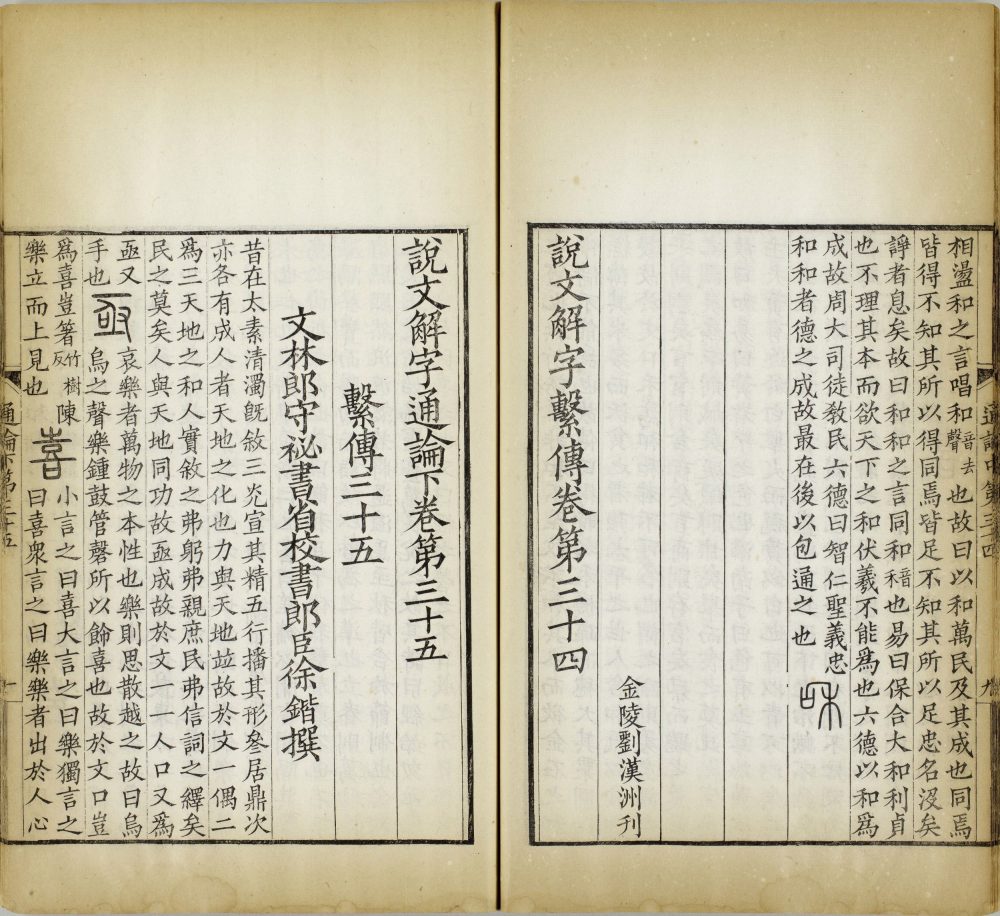 相盪和之言唱和音去聲也故曰以和萬民及其成也同焉
皆得不知其所以得同焉皆足不知其所以足忠名沒矣
諍者息矣故曰和和之言同和本音也易曰保合大和利貞
也不理其本而欲天下之和伏羲不能為也六德以和為
成故周大司徒敎民六德曰智仁聖義忠
和和者德之成故最在後以包通之也
說文解字繫傳卷第三十四
金陵劉漢洲刊
通論中第三十四
說文解字通論下卷第三十五
繫傳三十五
文林郎守祕書省校書郎臣徐鍇撰
昔在太素清濁旣敘三光宣其精五行播其形叄居鼎次
亦各有成人者天地之化也力與天地竝故於文一偶二
為三天地之和人實敘之弗躬弗親庶民弗信詞之繹矣
民之莫矣人與天地同功故亟成故於文二人口又為
亟又手也亟哀樂者萬物之本性也樂則思散越之故曰烏
烏之聲樂鍾鼓管磬所以飾喜也故於文口豈
為喜豈箸竹反樹陳喜小言之曰喜大言之曰樂獨言之
曰喜衆言之曰樂樂者出於人心
樂立而上見也
通論下第三十五
一